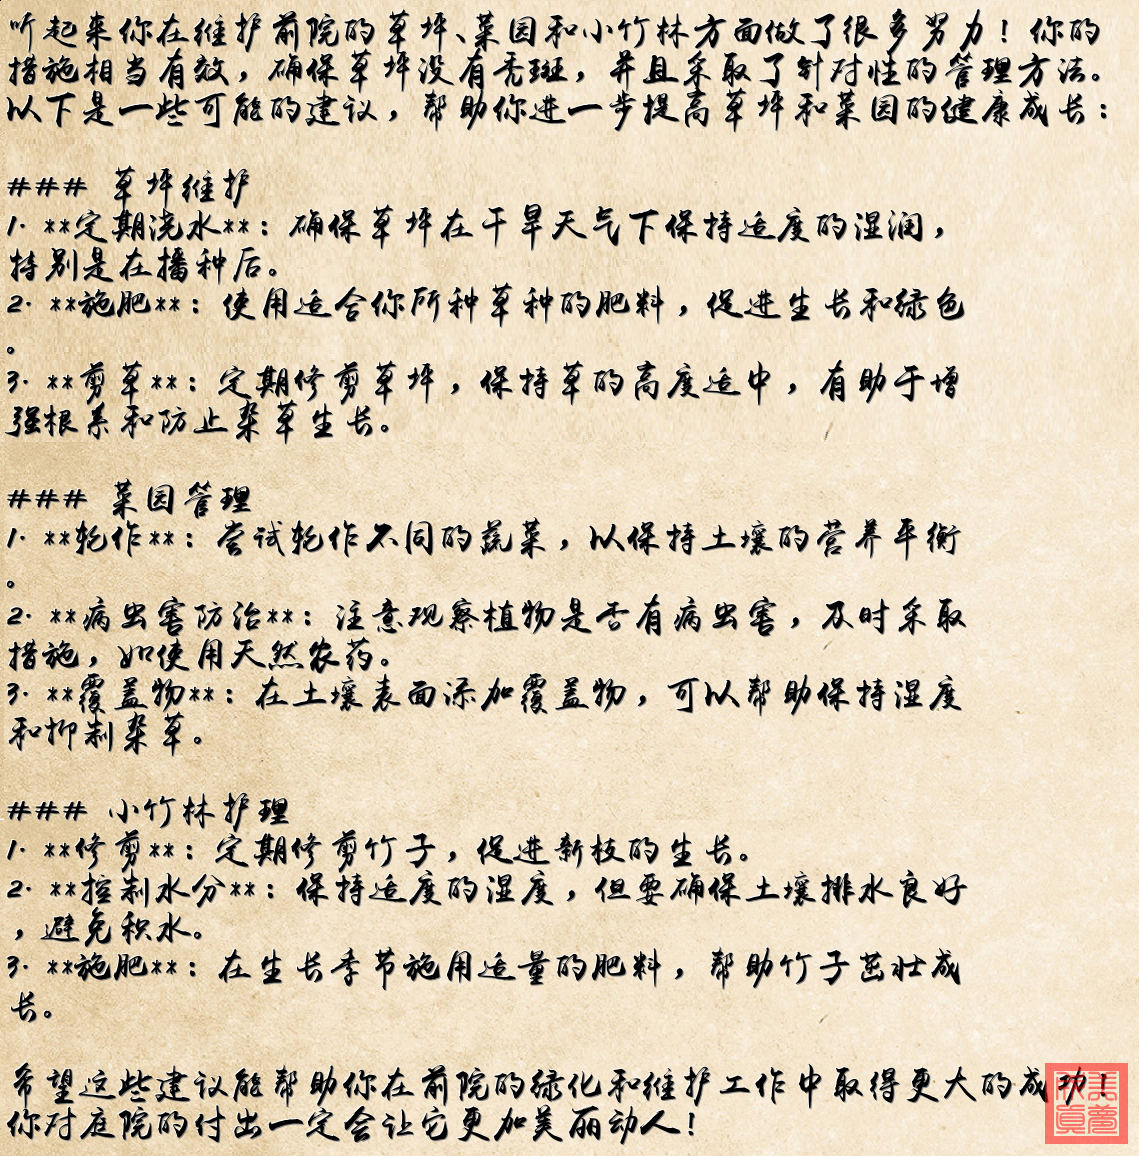 听起来你在维护前院的草坪、菜园和小竹林方面做了很多努力！你的
措施相当有效，确保草坪没有秃斑，并且采取了针对性的管理方法。
以下是一些可能的建议，帮助你进一步提高草坪和菜园的健康成长：
### 草坪维护
1. **定期浇水**：确保草坪在干旱天气下保持适度的湿润，
特别是在播种后。
2. **施肥**：使用适合你所种草种的肥料，促进生长和绿色
。
3. **剪草**：定期修剪草坪，保持草的高度适中，有助于增
强根系和防止杂草生长。
### 菜园管理
1. **轮作**：尝试轮作不同的蔬菜，以保持土壤的营养平衡
。
2. **病虫害防治**：注意观察植物是否有病虫害，及时采取
措施，如使用天然农药。
3. **覆盖物**：在土壤表面添加覆盖物，可以帮助保持湿度
和抑制杂草。
### 小竹林护理
1. **修剪**：定期修剪竹子，促进新枝的生长。
2. **控制水分**：保持适度的湿度，但要确保土壤排水良好
，避免积水。
3. **施肥**：在生长季节施用适量的肥料，帮助竹子茁壮成
长。
希望这些建议能帮助你在前院的绿化和维护工作中取得更大的成功！
你对庭院的付出一定会让它更加美丽动人！